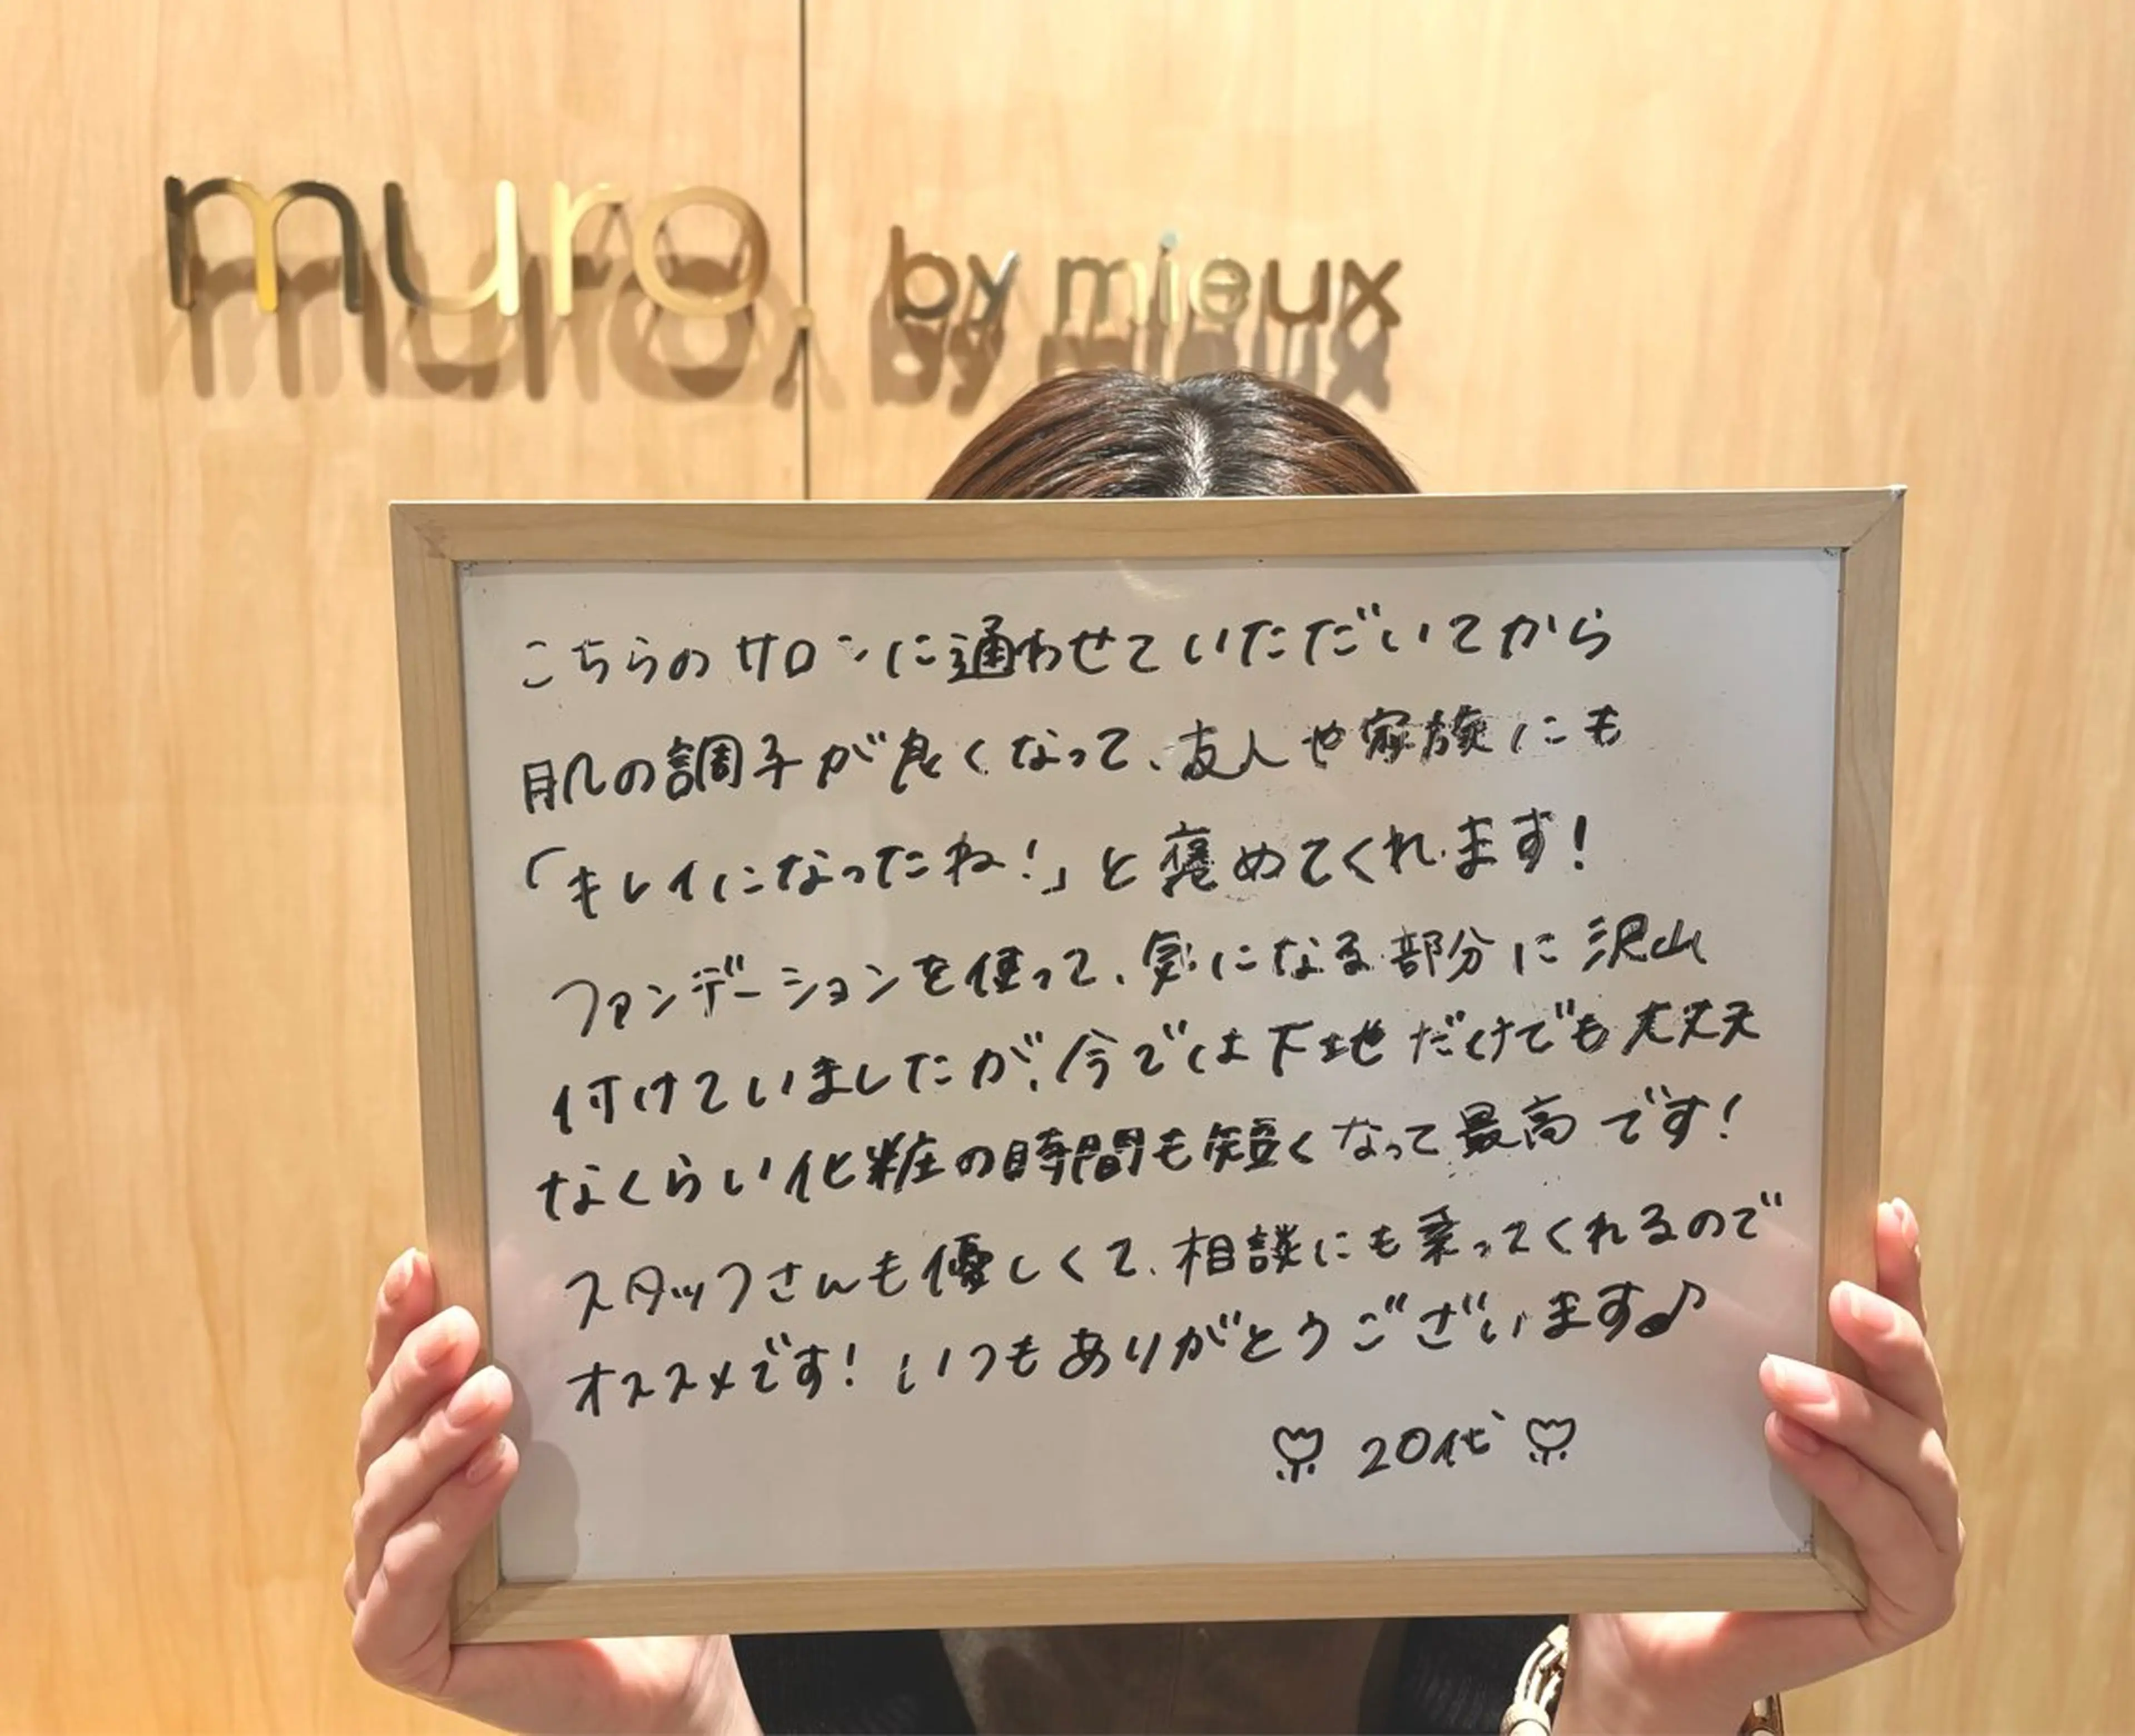 muro. by mieux
こちらのサロンに通わせていただいてから
肌の調子が良くなって、友人や家族にも
「キレイになったね!」と褒めてくれます!
ファンデーションを使って、気になる部分に沢山
付けていましたが、今では下地だけでも大丈夫
なくらい化粧の時間も短くなって最高です!
スタッフさんも優しくて、相談にも乗ってくれるので
オススメです!いつもありがとうございます♪
20代